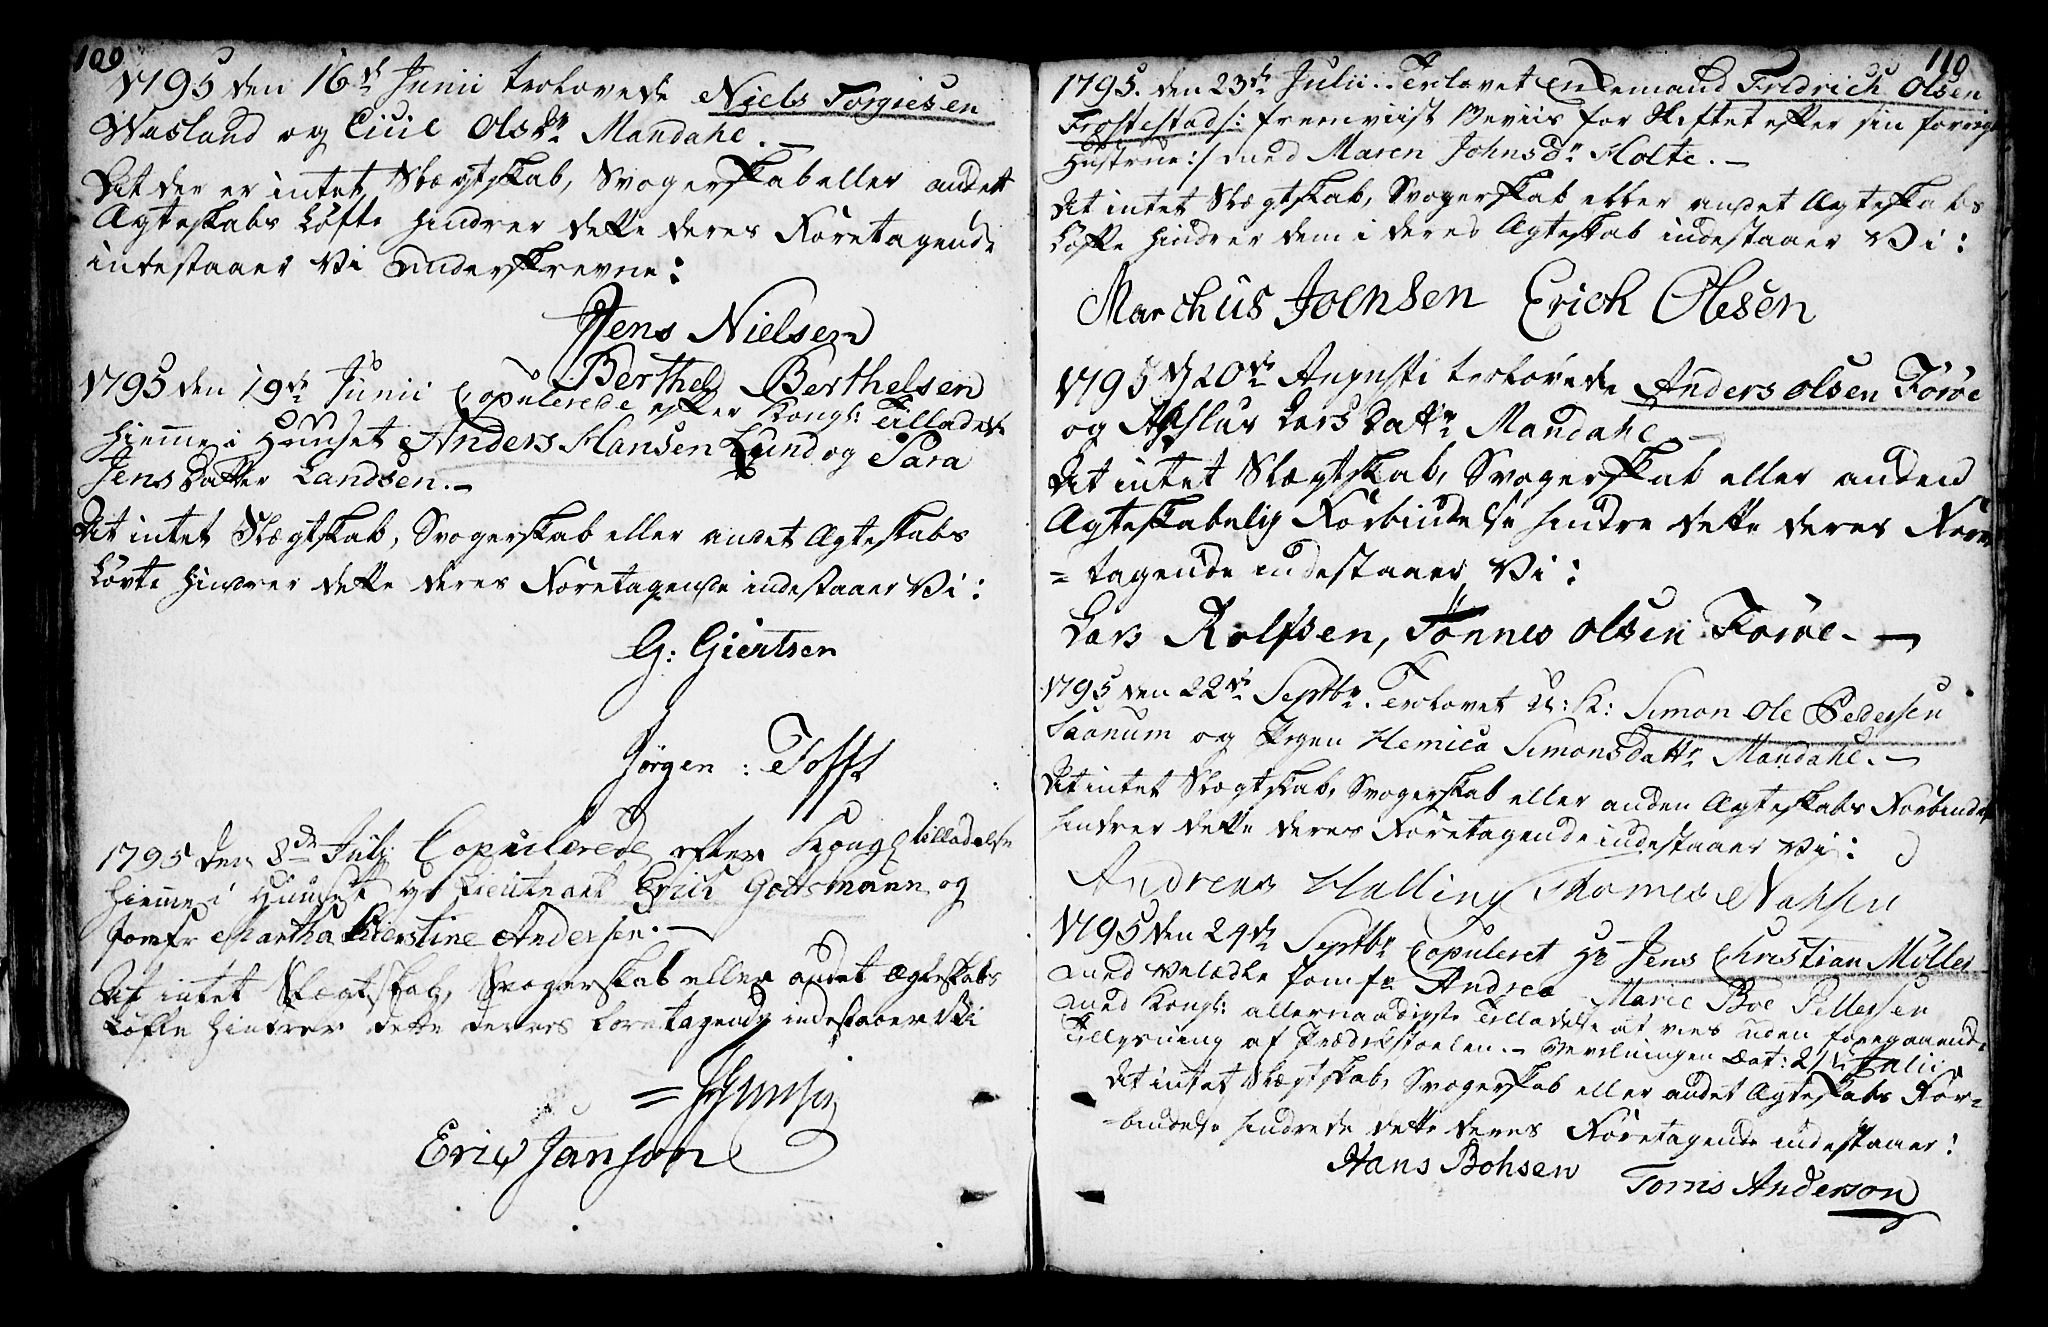 109
1795 den 16de Junii trolovede Niels Torgiesen
Wasland og Ciiil Olsdr Mandahl. –
At der er intet Slægtskab, Svogerskab eller andet
Ægteskabs Løfte hindrer dette deres Foretagende
indestaaer Vi underskrevne:
Jens Nielsen
Berthel Berthelsen
1795 den 19de Junii Copulerede efter Kongl: Tilladelse
hieme i Huuset Anders Hansen Lund og Sara
Jens Datter Landsen. –
At intet Slægtskab, Svogerskab eller andet Ægteskabs
Løvte hindrer dette deres Foretagende indestaaer Vi:
G: Giertsen
Jørgen : Tofft
1795 den 8de Julj Copulerede efter Kongl tilladelse
hieme i Huuset Hr Lieutnant Erich Gottsmann og
Jomfr Martha Kierstine Andersen. –
At intet Slægtskab, Svogerskab eller andet Ægteskabs
Løfte hindrer dette deres Foretagende indestaaer Vi
Eric Janson
110
1795. den 23de Julii. Trolovet Enkemand Fredrich Olsen
Frøstestad /: fremviist Beviis for Skiftet efter sin forrige
Hustrue :/ med Maren Johnsdr Holte. –
At intet Slægtskab, Svogerskab eller andet Ægteskabs
Løfte hindrer dem i deres Ægteskab indestaaer Vi:
Marchus Joensen Erich Olesen
1795 d 20de Augusti trolovede Anders Olsen Forøe
og Lars Dattr Mandahl –
At intet Slægtskab, Svogerskab eller anden
Ægteskabelig Forbindelse hindre dette deres Fore
= tagende indestaaer Vi:
Lars Rolfsen, Tönnes Olsen Forøe. –
1795 den 22de Septbr. Trolovet U: K: Simon Ole Pedersen
Saanum og Pigen Hemica Simonsdattr Mandahl. –
At intet Slægtskab, Svogerskab eller anden Ægteskabs Forbindelse
hindrer dette deres Foretagende indestaaer Vi:
Andreas Halling Thomes Nahsen
1795 den 24de Septbr Copuleret Hr Jens Christian Möller
med Velædle Jomfr Andrea Marie Boe Pettersen
med Kongl: allernaadigste Tilladelse at vies uden foregaaende
Tillysning af Prædikestoelen. – Bevilningen Dat: Julii
At intet Slægtskab, Svogerskab eller andet Ægteskabs For=
= bindelse hindrede dette deres Foretagende indestaaer:
Hans Bohsen
Torris Anderson